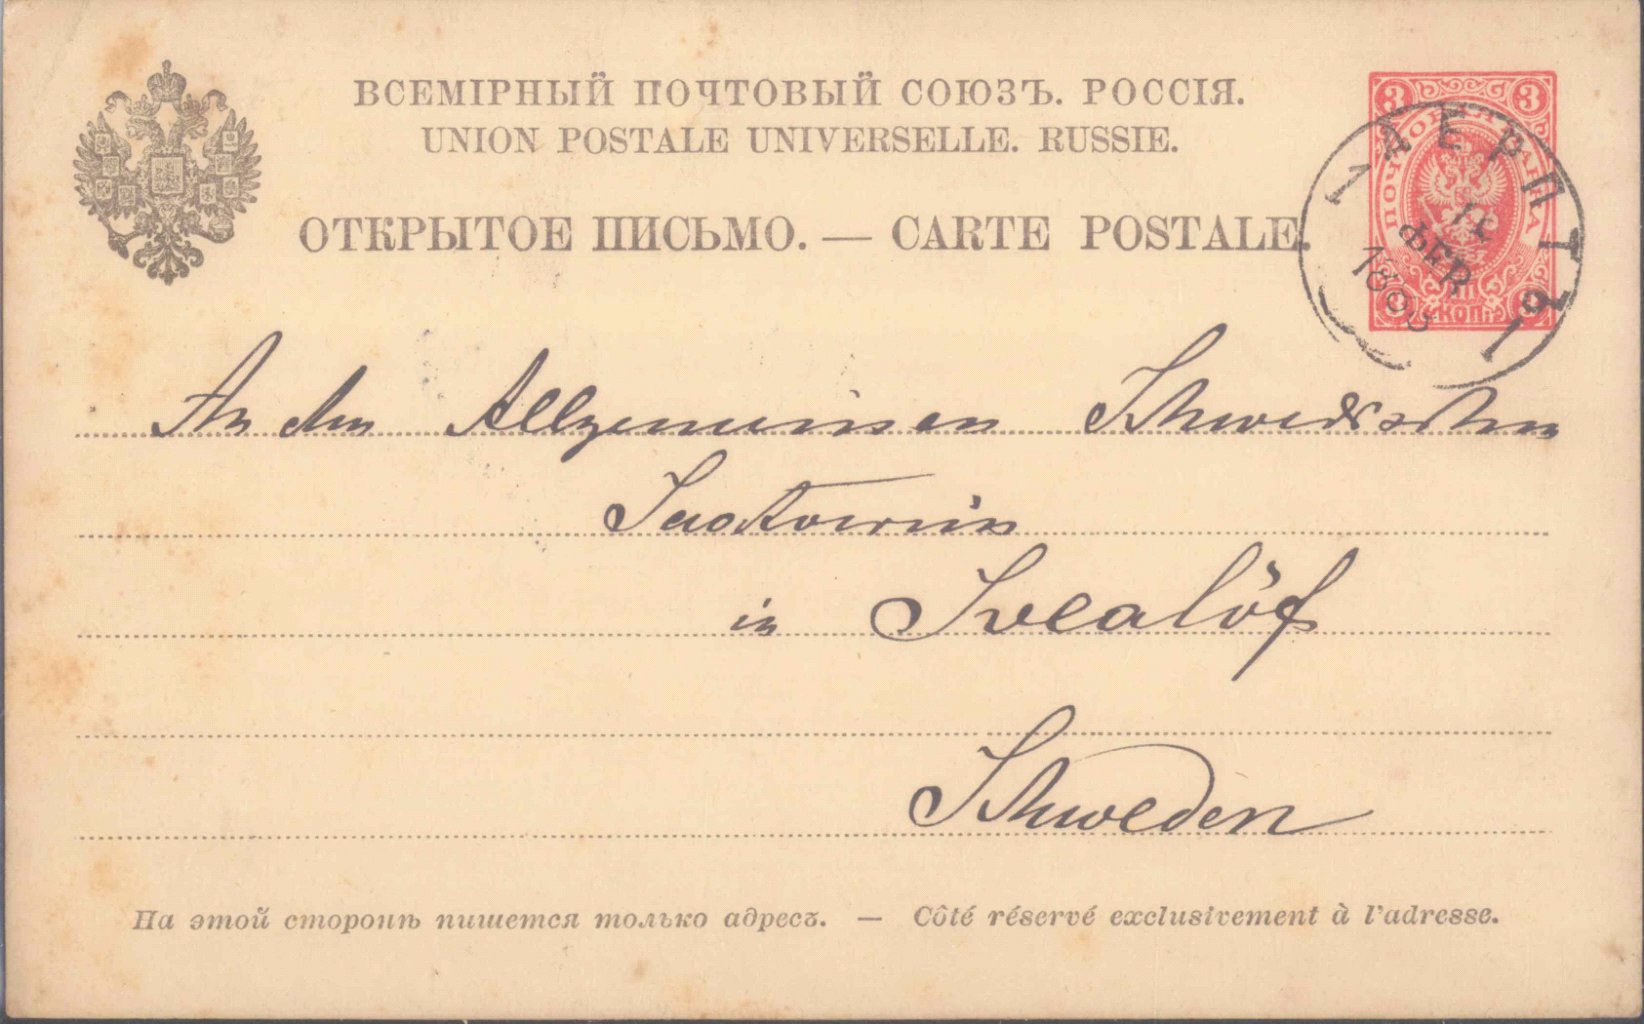 ВСЕМІРНЫЙ ПОЧТОВЫЙ СОЮЗЪ. РОССІЯ.
UNION POSTALE UNIVERSELLE. RUSSIE.
ОТКРЫТОЕ ПИСЬМО. — CARTE POSTALE.
3 3
ПОЧТОВАЯ МАРКА
КОП.
1 ДЕРПТЪ 1
ФЕВ
An den Allgemeinen Schwedischen
Saatverein
in Svealöf
Schweden
На этой сторонѣ пишется только адресъ. — Côté réservé exclusivement à l'adresse.